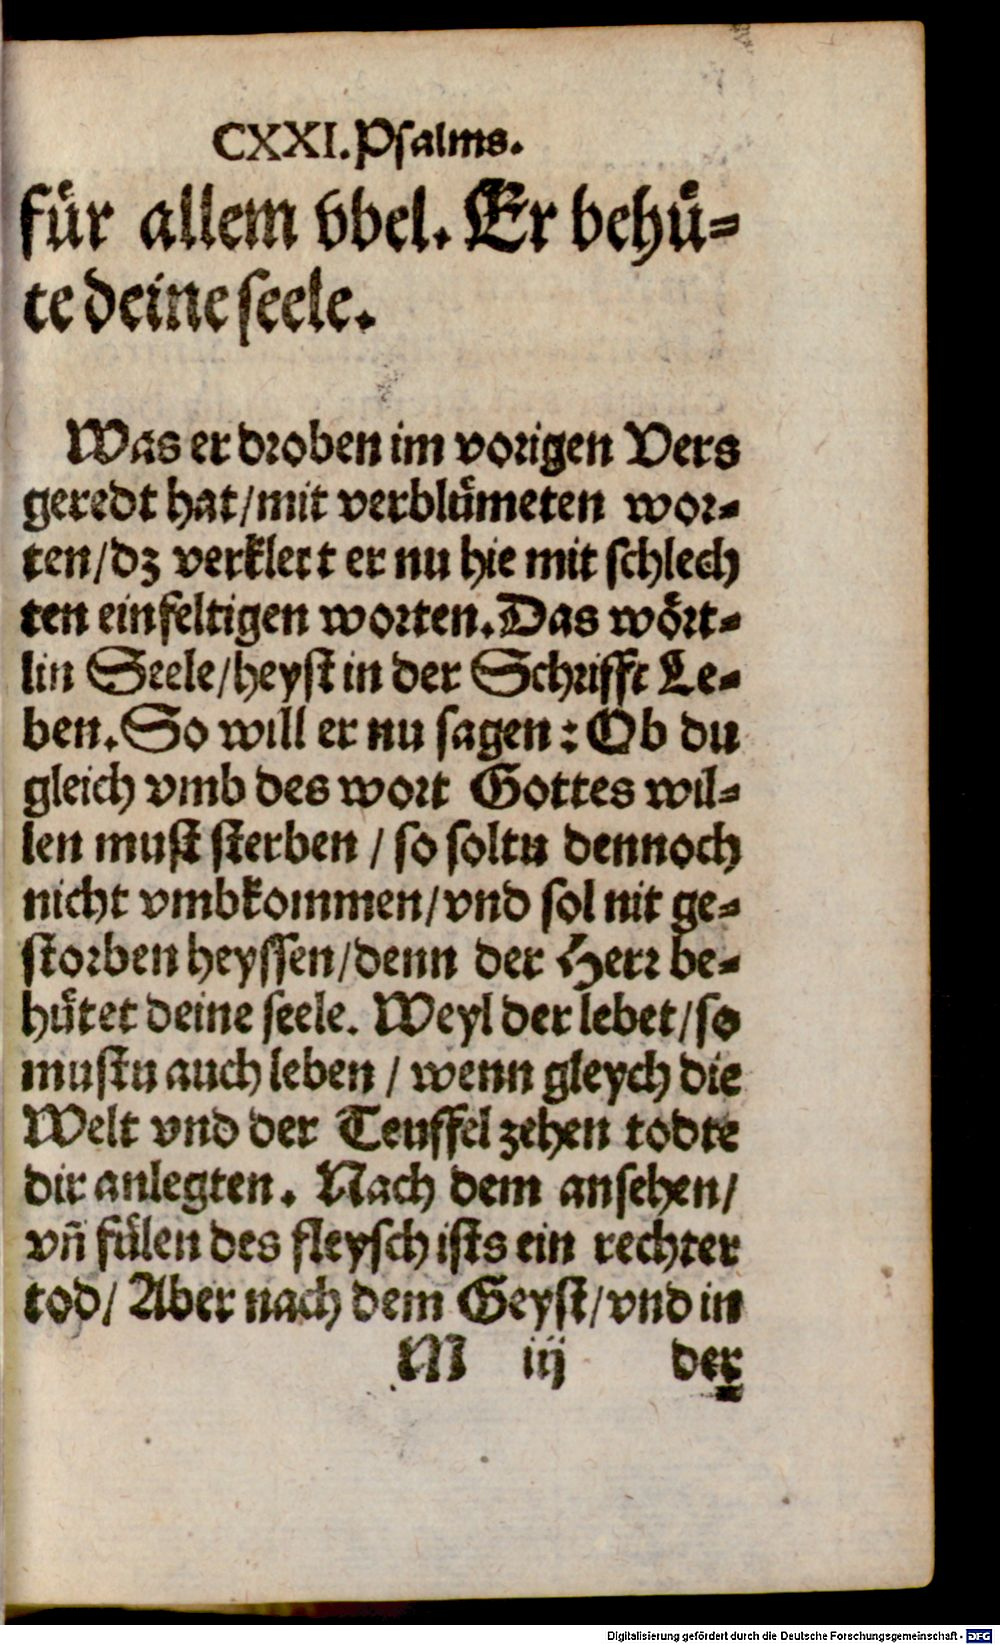 CXXI. Psalms.
fuͤr allem vbel. Er behuͤ-
te deine seele.
Was er droben im vorigen Vers
geredt hat/mit verbluͤmeten wor-
ten/dz verklert er nu hie mit schlech
ten einfeltigen worten. Das woͤrt-
lin Seele/heyst in der Schrifft Le-
ben. So will er nu sagen: Ob du
gleich vmb des wort Gottes wil-
len must sterben / so soltu dennoch
nicht vmbkommen/vnd sol nit ge-
storben heyssen/denn der Herr be-
huͤtet deine seele. Weyl der lebet/so
mustu auch leben / wenn gleych die
Welt vnd der Teuffel zehen todte
dir anlegten. Nach dem ansehen/
vñ fuͤlen des fleysch ists ein rechter
tod/ Aber nach dem Geyst/vnd in
M iij der
Digitalisierung gefördert durch die Deutsche Forschungsgemeinschaft - DFG